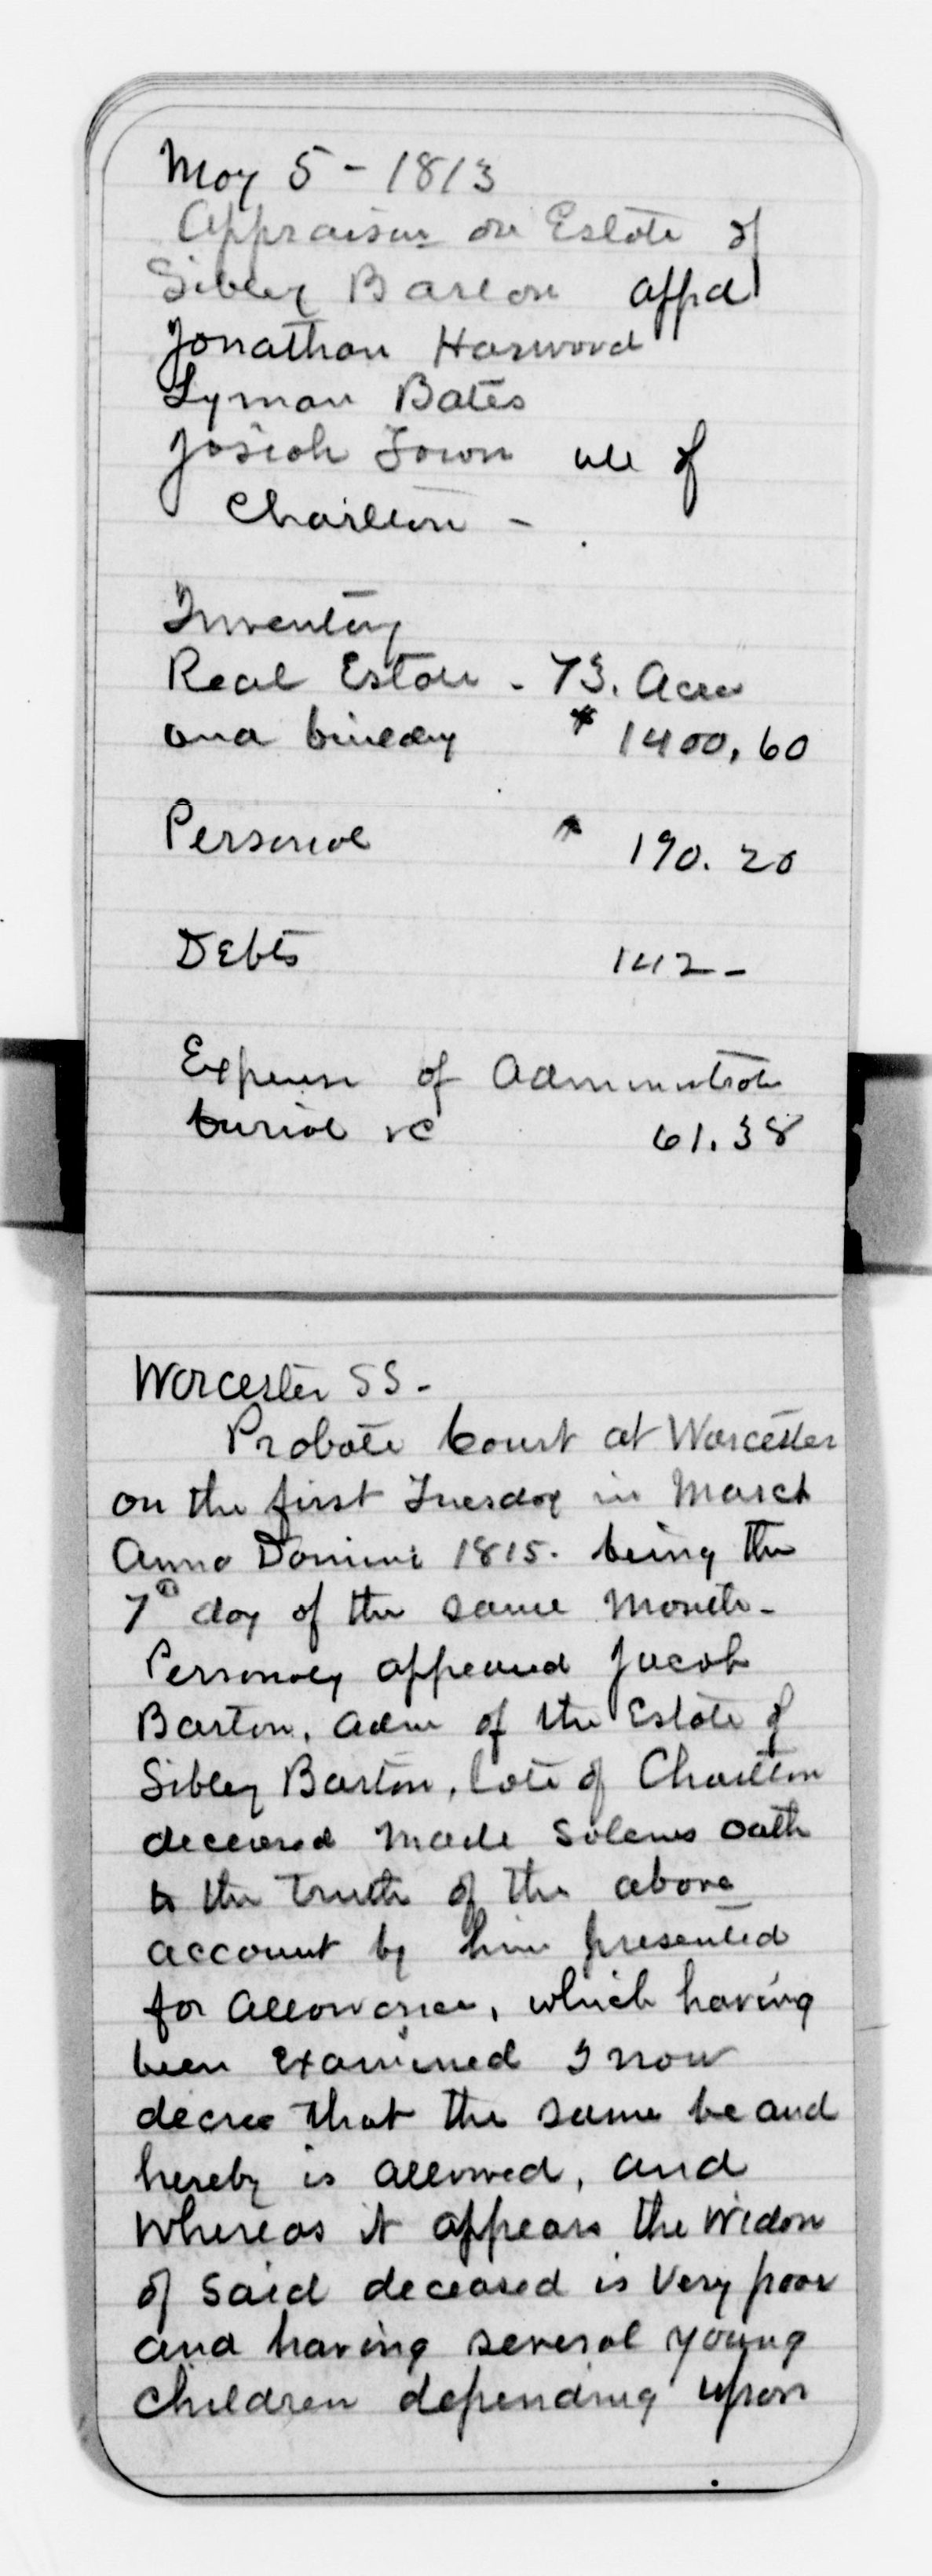 May 5 - 1813
Appraisers on Estate of
Sibley Barton appd
Jonathan Harwood
Lyman Bates
Josiah Town all of
Charlton -
Inventory
Real Estate - 73. Acres
and building $ 1400.60
Personal $ 190.20
Debts 142 -
Expense of Administrator
burial &c 61.38
Worcester SS -
Probate Court at Worcester
on the first Tuesday in March
Anno Domini 1815. being the
7th day of the same month -
Personaly appeared Jacob
Barton, Adm of the Estate of
Sibley Barton, late of Charlton
deceased made solemn oath
to the truth of the above
account by him presented
for Allowance, which having
been examined I now
decree that the same be and
hereby is allowed, and
Whereas it appears the Widow
of said deceased is Very poor
and having several young
Children depending upon